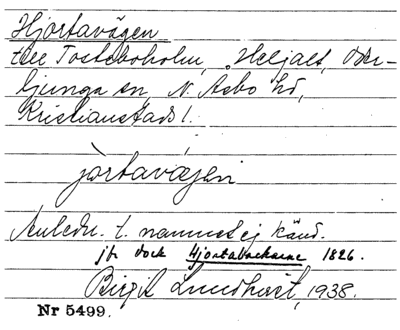 Hjortavägen
till Tosteboholm, Heljalt, Örke-
ljunga sn, N. Åsbo hd,
Kristianstads l.
jòrtavä́gen
Anledn. t. namnet ej känd.
jfr dock Hjortabackarne 1826.
Birgit Lundkvist, 1938.
Nr 5499.